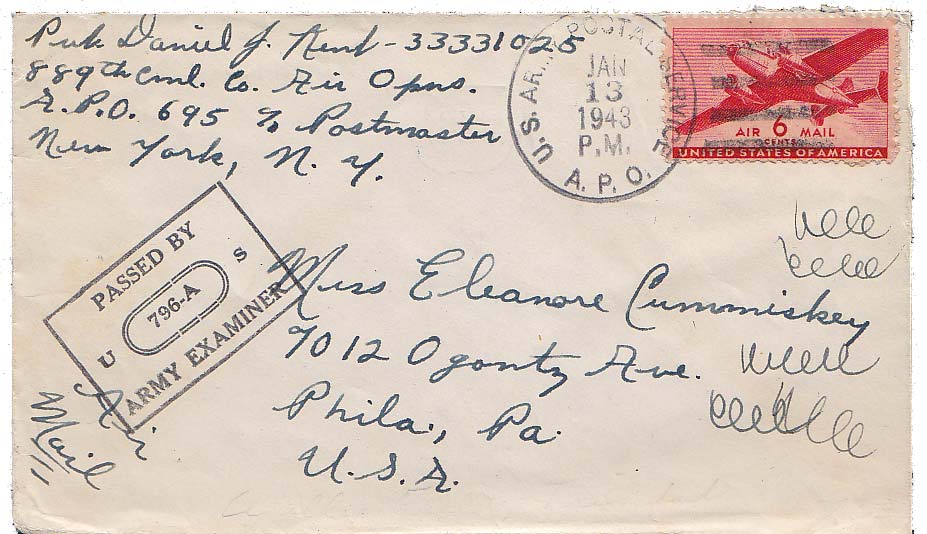 Pvt. Daniel J. Kent - 33331025
889th Cml. Co. Air Opns.
A.P.O. 695 c/o Postmaster
New York, N. Y.
U.S. ARMY POSTAL SERVICE
JAN
13
1943
P.M.
A. P. O.
AIR 6 MAIL
CENTS
UNITED STATES OF AMERICA
PASSED BY
U 796-A S
ARMY EXAMINER
Air
Mail
Miss Eleanore Cummiskey
7012 Ogontz Ave.
Phila., Pa.
U.S.A.